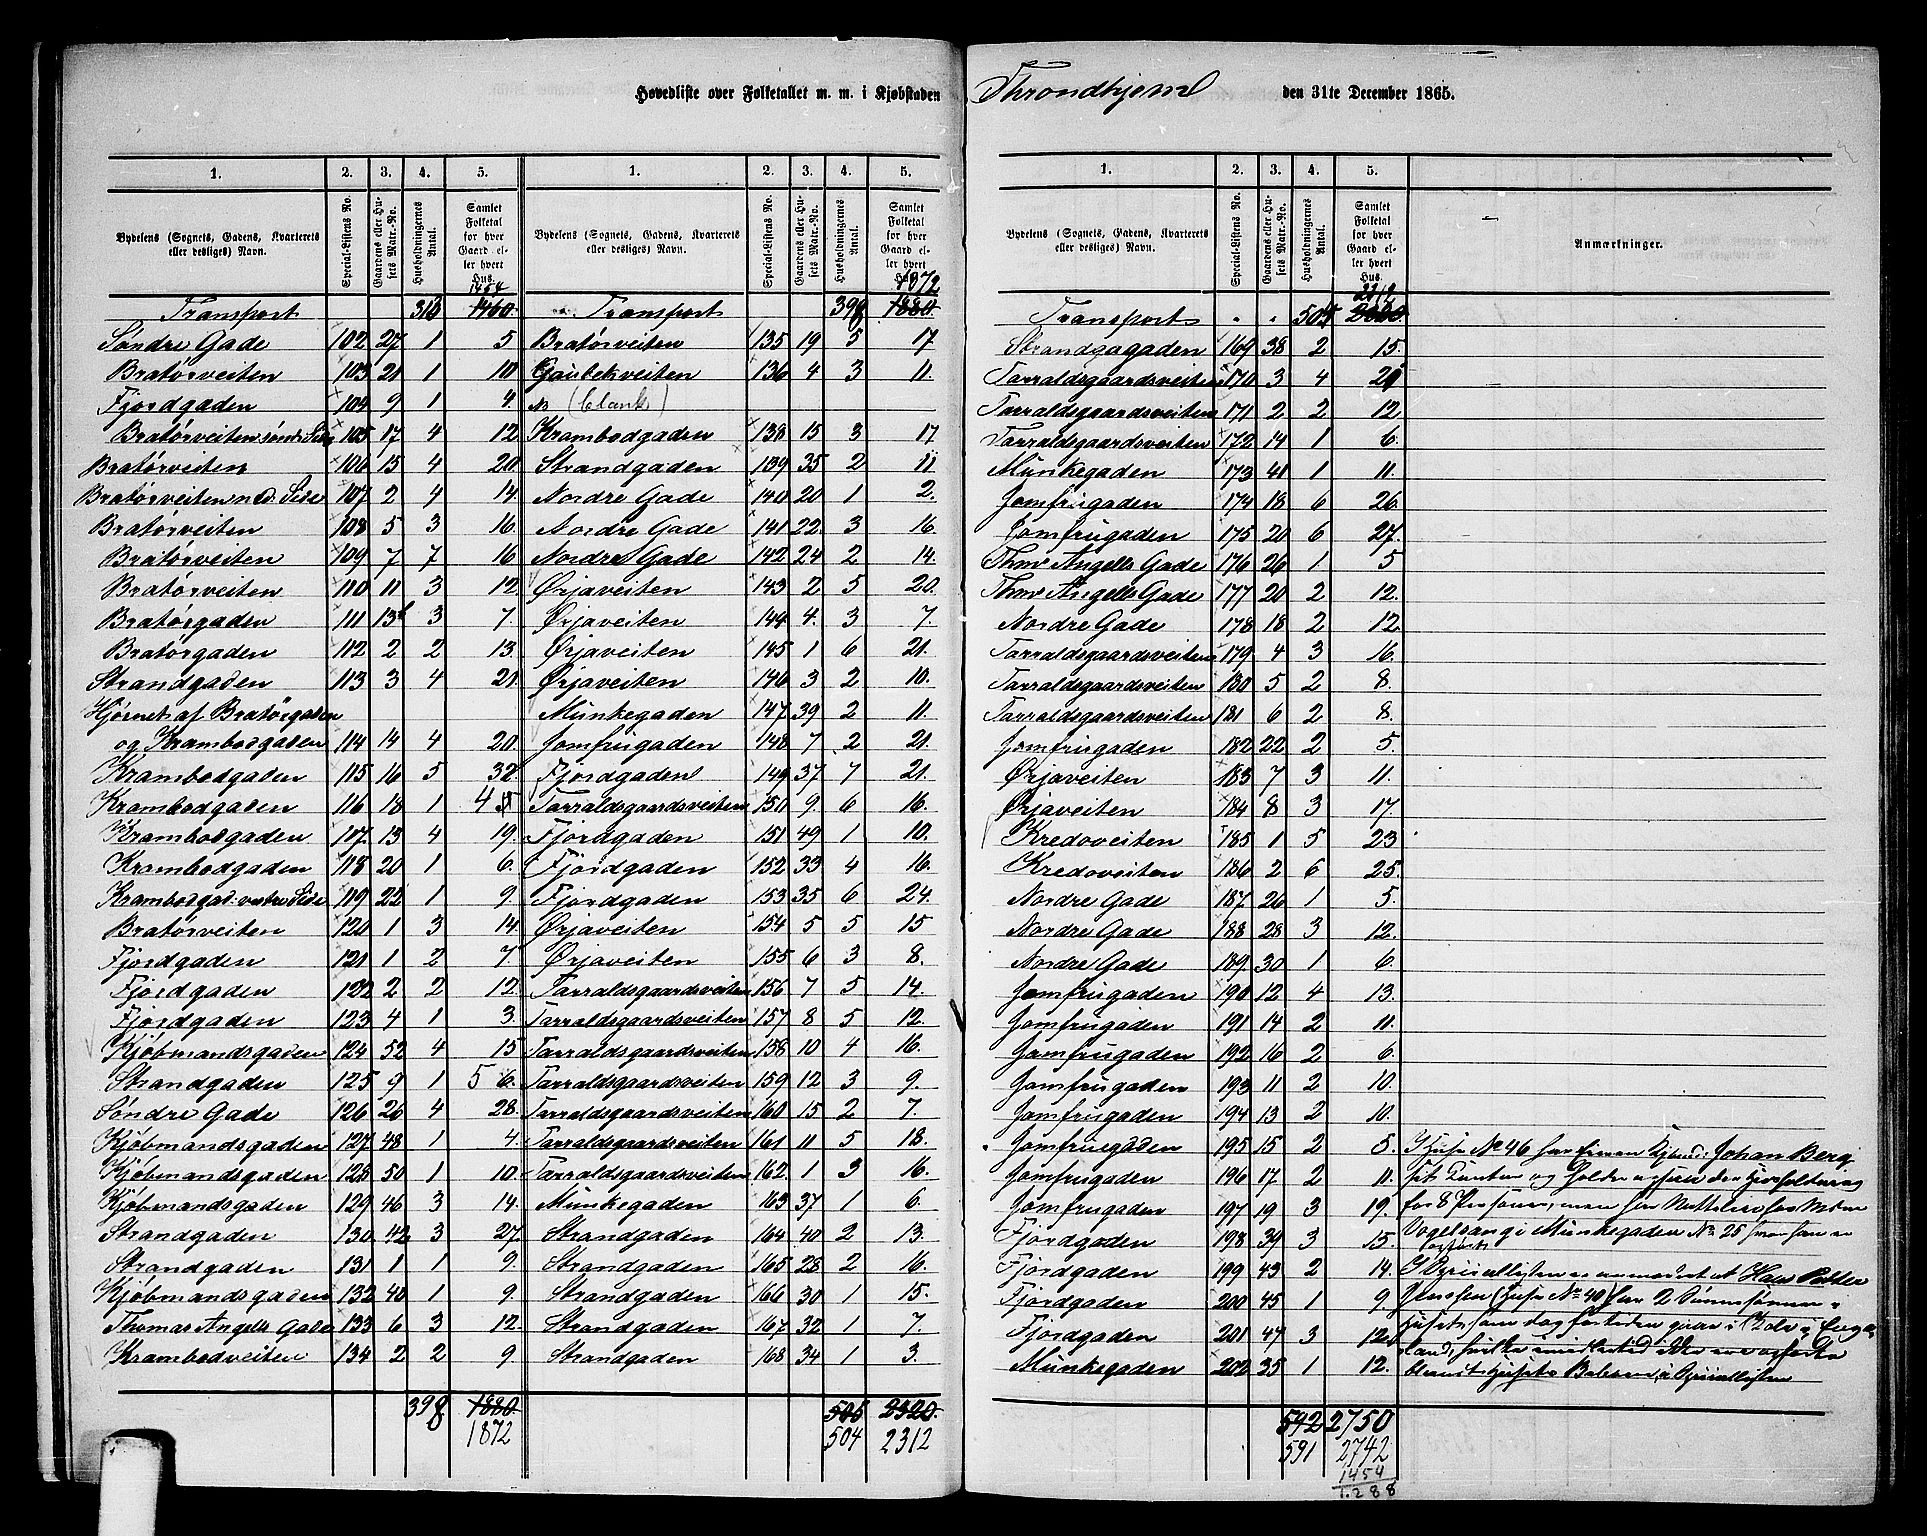 Hovedliste over Folketallet m. m. i Kjøbstaden Throndhjem den 31te December 1865.
1. 2. 3. 4. 5. 1. 2. 3. 4. 5.
Bydelens (Sognets, Gadens, Kvarterets eller desliges) Navn. Special-Listens No. Gaardens eller Husets Matr.-No. Husholdningernes Antal. Samlet Folketal for hver Gaard eller hvert Hus.
Bydelens (Sognets, Gadens, Kvarterets eller desliges) Navn. Special-Listens No. Gaardens eller Husets Matr.-No. Husholdningernes Antal. Samlet Folketal for hver Gaard eller hvert Hus.
1454
Transport 313 1460
Søndre Gade 102 27 1 5
Bratørveiten 103 21 1 10
Fjordgaden 104 9 1 4.
Bratørveiten sønd. Side 105 17 4 12
Bratørveiten 106 15 4 20
Bratørveiten nd. Side 107 2 4 14.
Bratørveiten 108 5 3 16.
Bratørveiten 109 7 7 16
Bratørveiten 110 11 3 12
Bratørgaden 111 13 3 7.
Bratørgaden 112 2 2 13.
Strandgaden 113 3 4 21.
Hjørnet af Bratørgaden
og Krambodgaden 114 14 4 20.
Krambodgaden 115 16 5 32
Krambodgaden 116 18 1 4
Krambodgaden 117. 13 4 19.
Krambodgaden 118 20 1 6.
Krambodgad. vestre Side 119 22 1 9.
Bratørveiten 120 1 3 14.
Fjordgaden 121 1 2 7
Fjordgaden 122 2 2 12.
Fjordgaden 123 4 1 3.
Kjøbmandsgaden 124 52 4 15
Strandgaden 125 9 1 5 6.
Søndre Gade 126 26 4 28.
Kjøbmandsgaden 127 48 1 4.
Kjøbmandsgaden 128 50 1 10.
Kjøbmandsgaden 129 46 3 14.
Strandgaden 130 42 3 27
Strandgaden 131 1 1 9.
Kjøbmandsgaden 132 40 1 9
Thomas Angells Gade 133 6 3 12.
Krambodveiten 134 2 2 9.
398 1880
1872
1872
Transport 398 1880
Bratørveiten 135 19 5 17
Gaubekveiten 136 4 3 11.
No (blank)
Krambodgaden 138 15 3 17
Strandgaden 139 35 2 11
Nordre Gade 140 20 1 2.
Nordre Gade 141 22 3 16
Nordre Gade 142 24 2 14.
Ørjaveiten 143 2 5 20.
Ørjaveiten 144 4. 3 7.
Ørjaveiten 145 1 6 21.
Ørjaveiten 146 3 2 10.
Munkegaden 147 39 2 11.
Jomfrugaden 148 7 2 21.
Fjordgaden 149 37 7 21.
Tarraldsgaardsveiten 150 9. 6 16.
Fjordgaden 151 49 1 10.
Fjordgaden 152 33 4 16.
Fjordgaden 153 35 6 24.
Ørjaveiten 154 5 5 15
Ørjaveiten 155 6 3 8.
Tarraldsgaardsveiten 156 7 5 14.
Tarraldsgaardsveiten 157 8 5 12.
Tarraldsgaardsveiten 158 10 4 16.
Tarraldsgaardsveiten 159 12 3 9.
Tarraldsgaardsveiten 160 15 2 7.
Tarraldsgaardsveiten 161 11 5 18.
Tarraldsgaardsveiten 162. 1 3 16.
Munkegaden 163 37 1 6.
Strandgaden 164 40 2 13.
Strandgaden 165 28 2 16.
Strandgaden 166 30 1 15.
Strandgaden 167 32 1 7.
Strandgaden 168 34 1 3.
505 2320.
504 2312
1. 2. 3. 4. 5.
Bydelens (Sognets, Gadens, Kvarterets eller desliges) Navn. Special-Listens No. Gaardens eller Husets Matr.-No. Husholdningernes Antal. Samlet Folketal for hver Gaard eller hvert Hus. Anmærkninger.
2312
Transport 505 2320
Strandgagaden 169 38 2 15.
Tarraldsgaardsveiten 170 3 4 21
Tarraldsgaardsveiten 171 2 2 12
Tarraldsgaardsveiten 172 14 1 6.
Munkegaden 173 41 1 11.
Jomfrugaden 174 18 6 26.
Jomfrugaden 175 20 6 27.
Thms Angells Gade 176 26 1 5
Thms Angells Gade 177 20 2 12.
Nordre Gade 178 18 2 12
Tarraldsgaardsveiten 179 4 3 16.
Tarraldsgaardsveiten 180 5 2 8.
Tarraldsgaardsveiten 181 6 2 8.
Jomfrugaden 182 22 2 5
Ørjaveiten 183 7 3 11.
Ørjaveiten 184 8 3 17.
Kredoveiten 185 1 5 23
Kredoveiten 186 2 6 25.
Nordre Gade 187 26 1 5.
Nordre Gade 188 28 3 12.
Nordre Gade 189. 30 1 6.
Jomfrugaden 190 12 4 13.
Jomfrugaden 191 14 2 11.
Jomfrugaden 192 16 2 6.
Jomfrugaden 193 11 2 10.
Jomfrugaden 194 13 2 10.
Jomfruegaden 195 15 2 5.
Jomfrugaden 196 17 2 11.
Jomfrugaden 197 19 3 19.
Fjordgaden 198 39 3 15.
Fjordgaden 199 43 2 14.
Fjordgaden 200 45 1 9.
Fjordgaden 201 47 3 12.
Munkegaden 202 35 1 12.
I Huse No 46 har Johan Berg
for 8 Personer, men
Vogelsang i Munkegaden No 25
opført
I Speciallisten er anmærket at Hans Petter
Jenssen (Huse No 40) har 2
Husets i Speciallisten
542 2750
591 2742
1454
1.288